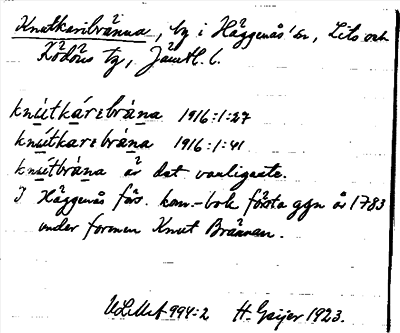 Knutkaribränna, by i Häggenås sn, Lits och
Rödöns tg, Jämtl. l.
knútkárɛbrána 1916:1:27
knútkarɛbrána 1916:1:41
knútbrána är det vanligaste.
I Häggenås förs. kom.-bok första ggn år 1783
under formen Knut Brännan.
ULMA 994:2 H. Geijer 1923.